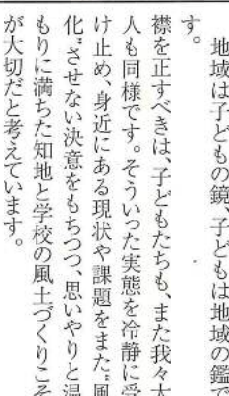 地域は子どもの鏡、子どもは地域の鑑で
す。
襟を正すべきは、子どもたちも、また我々大
人も同様です。そういった実態を冷静に受
け止め、身近にある現状や課題をまた〝風
化〟させない決意をもちつつ、思いやりと温
もりに満ちた知地と学校の風土づくりこそ
が大切だと考えています。